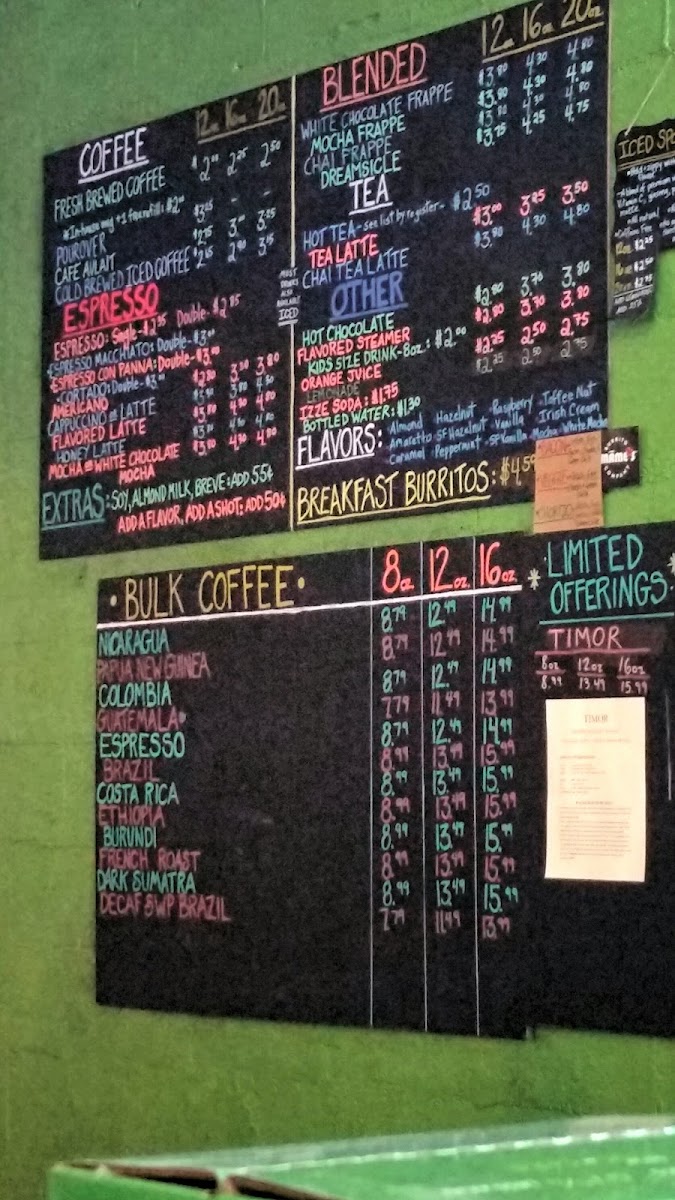 COFFEE 12oz 16oz 20oz
FRESH BREWED COFFEE $2.00 2.25 2.50
*In house mug +1 free refill: $2.00
POUROVER $3.25 - -
CAFE AULAIT $2.75 3.00 3.25
COLD BREWED ICED COFFEE $2.65 2.90 3.15
ESPRESSO
ESPRESSO: Single-$2.35 Double-$2.85
ESPRESSO MACCHIATO: Double-$3.00
ESPRESSO CON PANNA: Double-$3.00
CORTADO: Double-$3.00
AMERICANO $2.80 3.30 3.80
CAPPUCCINO OR LATTE
FLAVORED LATTE $3.80 4.30 4.80
HONEY LATTE $3.80 4.30 4.80
MOCHA OR WHITE CHOCOLATE $3.80 4.30 4.80
MOCHA
EXTRAS: SOY, ALMOND MILK, BREVE: ADD 55¢
ADD A FLAVOR, ADD A SHOT: ADD 50¢
MOST DRINKS ALSO AVAILABLE ICED
BLENDED 12oz 16oz 20oz
WHITE CHOCOLATE FRAPPE $3.80 4.30 4.80
MOCHA FRAPPE $3.80 4.30 4.80
CHAI FRAPPE $3.80 4.30 4.80
DREAMSICLE $3.75 4.25 4.75
TEA
HOT TEA - see list by register - $2.50
TEA LATTE $3.00 3.25 3.50
CHAI TEA LATTE $3.80 4.30 4.80
OTHER
HOT CHOCOLATE $2.80 3.30 3.80
FLAVORED STEAMER $2.80 3.30 3.80
KIDS SIZE DRINK-8oz: $2.00
ORANGE JUICE $2.25 2.50 2.75
LEMONADE $2.25 2.50 2.75
IZZE SODA: $1.75
BOTTLED WATER: $1.30
FLAVORS: Almond · Hazelnut · Raspberry · Toffee Nut
Amaretto · SF Hazelnut · Vanilla · Irish Cream
Caramel · Peppermint · SF Vanilla · Mocha · White Mocha
BREAKFAST BURRITOS: $4.59
BURRITO
MAME'S
COMPANY
ICED
• BULK COFFEE • 8oz 12oz 16oz
NICARAGUA 8.79 12.49 14.99
PAPUA NEW GUINEA 8.79 12.49 14.99
COLOMBIA 8.79 12.49 14.99
GUATEMALA 7.79 11.49 13.99
ESPRESSO 8.79 12.49 14.99
BRAZIL 8.99 13.49 15.99
COSTA RICA 8.99 13.49 15.99
ETHIOPIA 8.99 13.49 15.99
BURUNDI 8.99 13.49 15.99
FRENCH ROAST 8.99 13.99 15.99
DARK SUMATRA 8.99 13.49 15.99
DECAF SWP BRAZIL 7.79 11.49 13.99
* LIMITED *
OFFERINGS
TIMOR
8oz 12oz 16oz
8.99 13.49 15.99
TIMOR